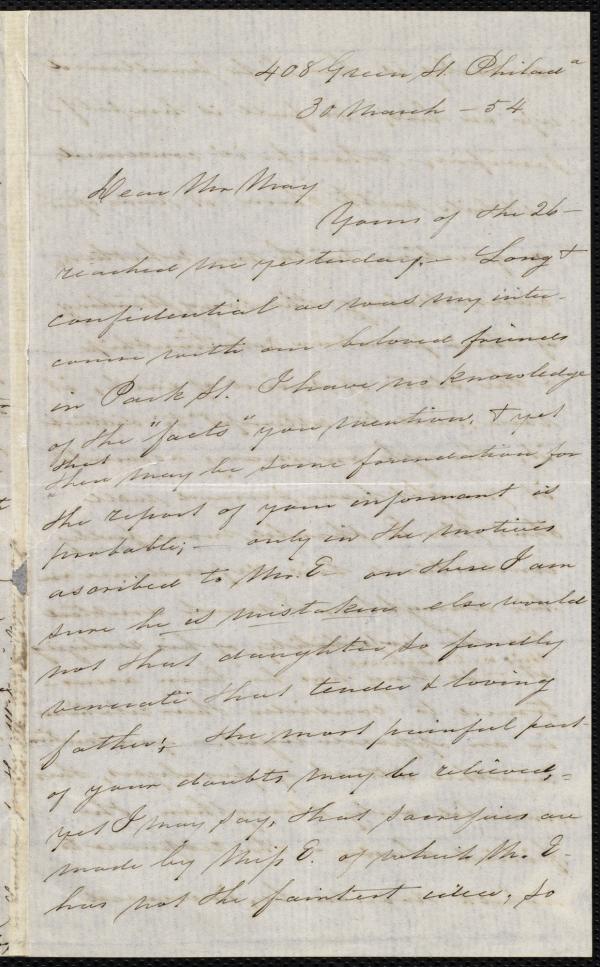 408 Green St. Philada
30 March - 54
Dear Mr May
Yours of the 26-
reached me yesterday.- Long &
confidential as was my inter-
course with our beloved friends
in Park St. I have no knowledge
of the "facts" you mention, & yet
that
there may be some foundation for
the report of your informant is
probable;- only in the motives
ascribed to Mr. E- on these I am
sure he is mistaken else would
not that daughter so fondly
venerate that tender & loving
father;- the most painful part
of your doubts may be relieved,-
yet I may say, that sacrifices are
made by Miss E. of which Mr. E-
has not the faintest idea, so